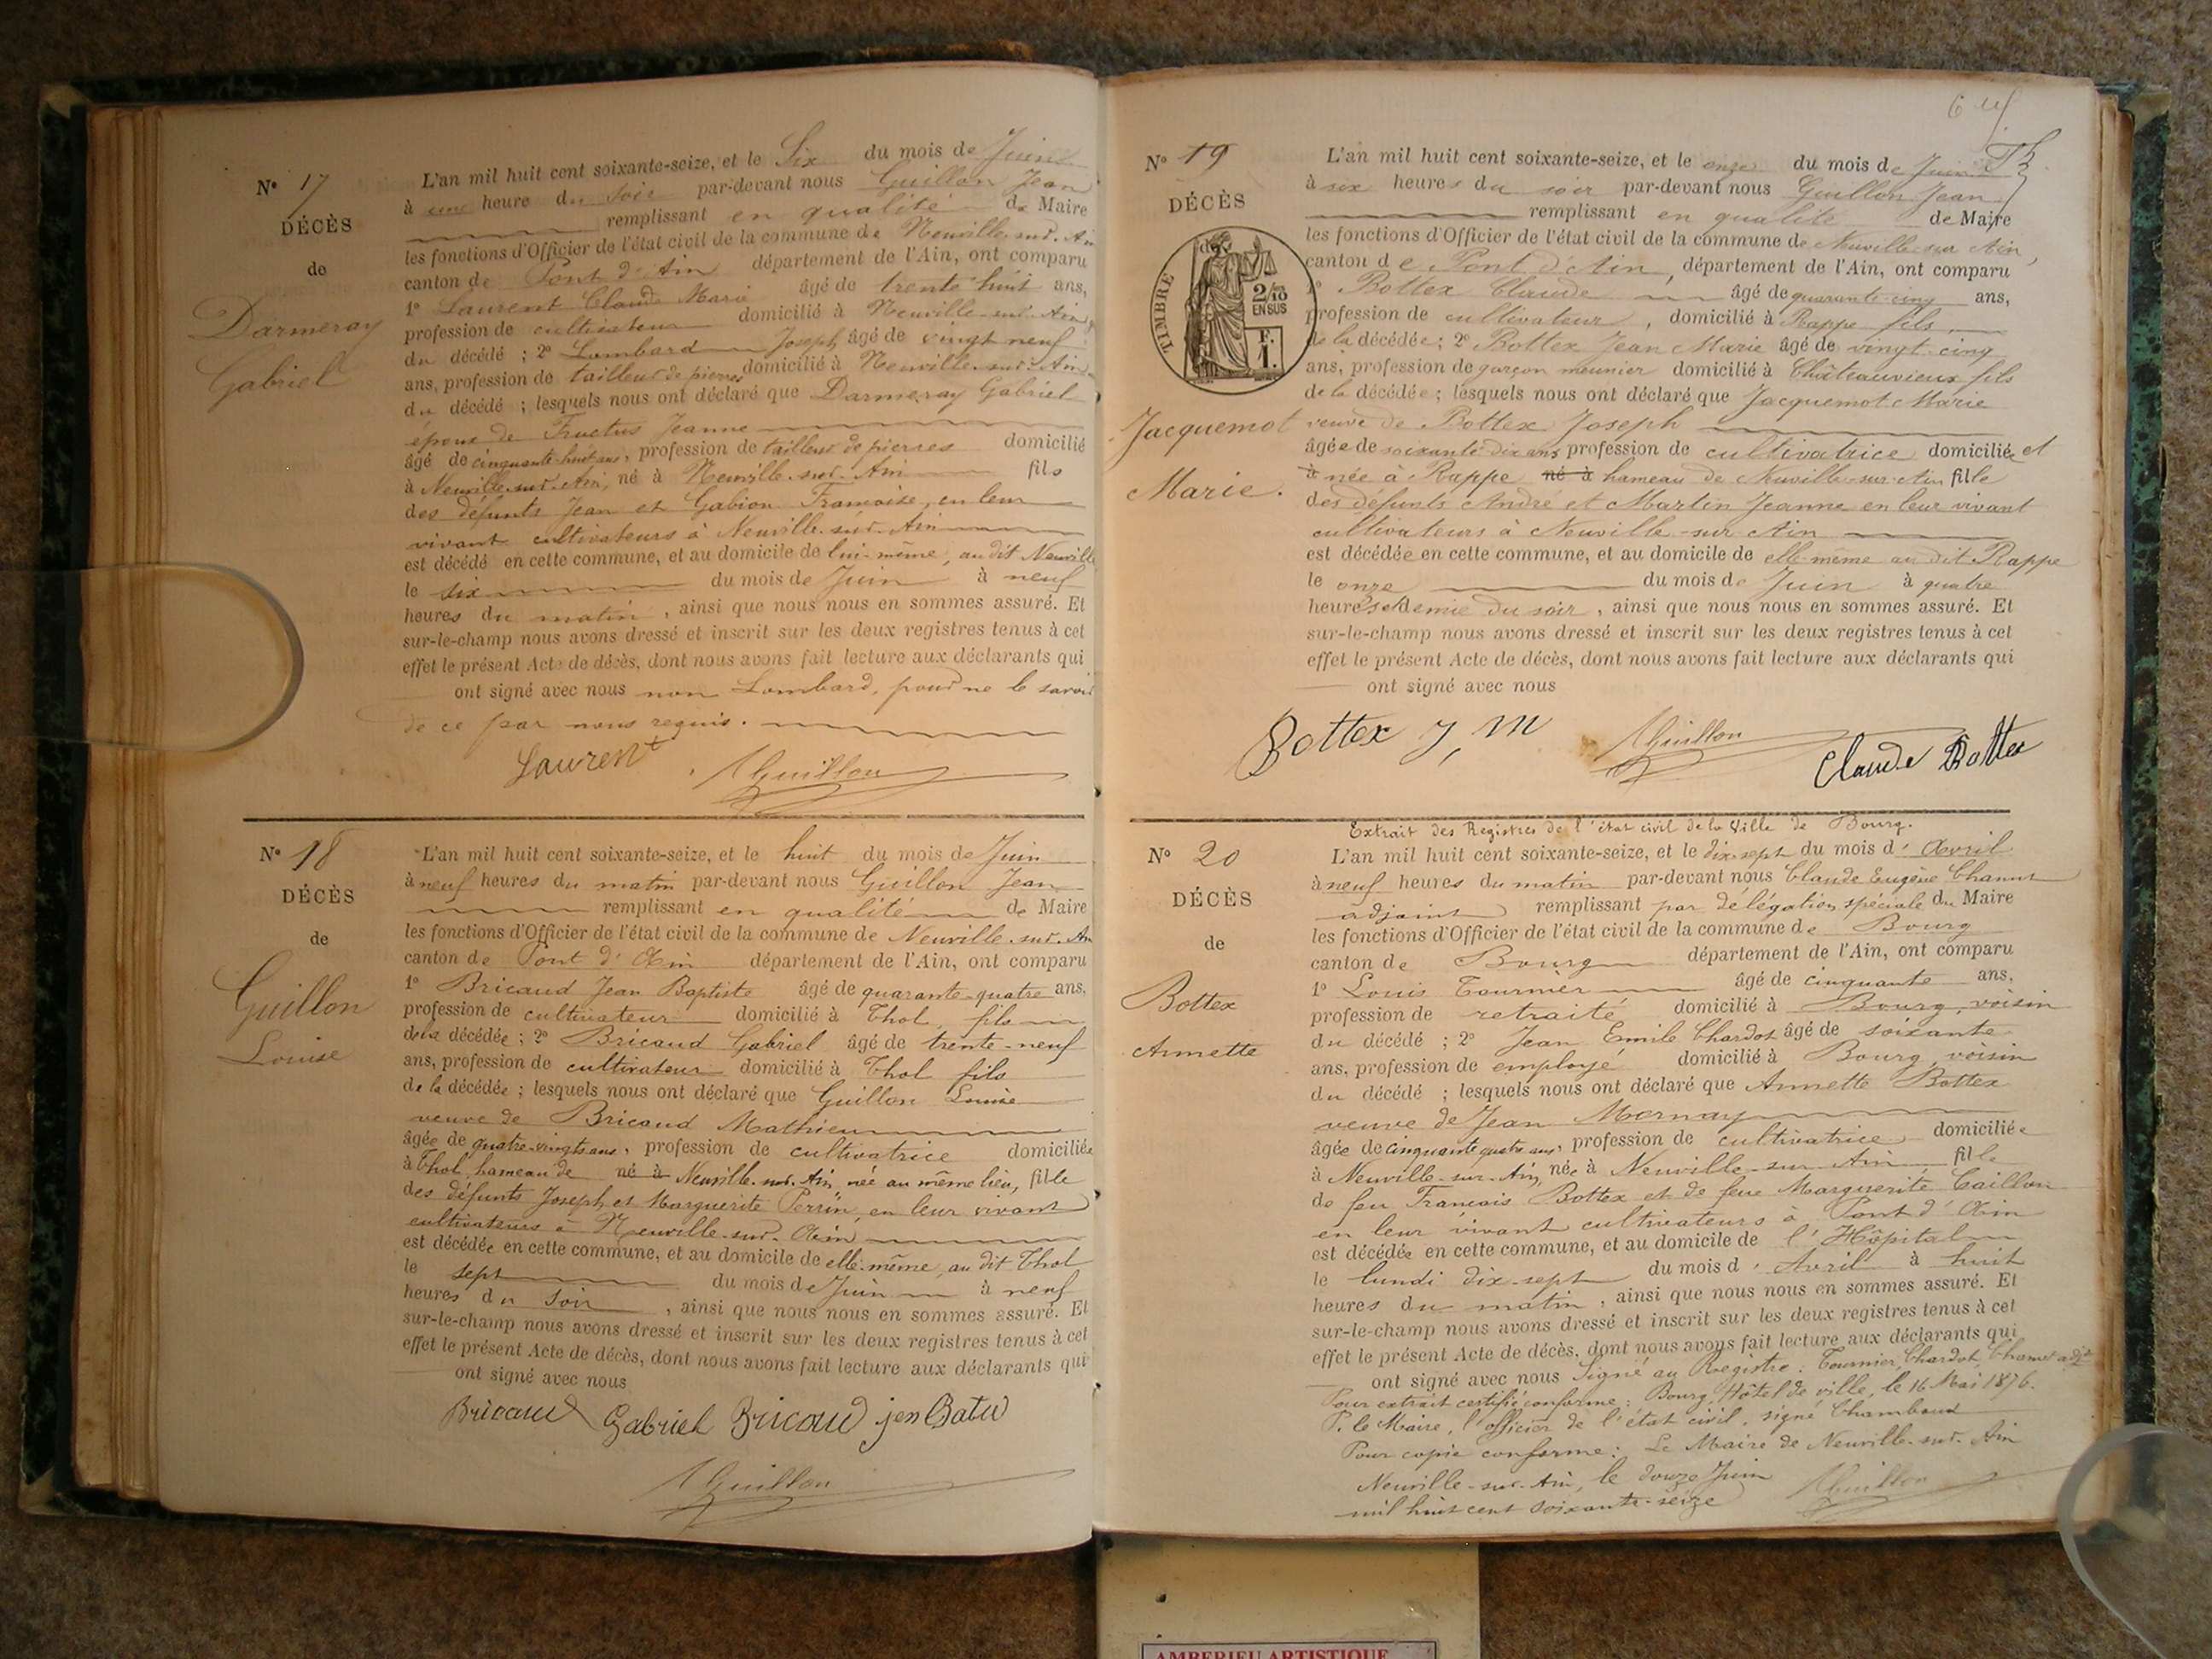 N° 17
DÉCÈS
de
Darmeray
Gabriel
L'an mil huit cent soixante-seize, et le Six du mois de Juin
à une heure du soir par-devant nous Guillon Jean
remplissant en qualité de Maire
les fonctions d'Officier de l'état civil de la commune de Neuville-sur-Ain
canton de Pont d'Ain département de l'Ain, ont comparu
1° Laurent Claude Marie âgé de trente huit ans,
profession de cultivateur domicilié à Neuville-sur-Ain
du décédé ; 2° Lombard Joseph âgé de vingt neuf
ans, profession de tailleur de pierres domicilié à Neuville-sur-Ain
du décédé ; lesquels nous ont déclaré que Darmeray Gabriel
époux de Fructus Jeanne
âgé de cinquante-huit ans, profession de tailleur de pierres domicilié
à Neuville-sur-Ain, né à Neuville-sur-Ain fils
des défunts Jean et Gabion Françoise, en leur
vivant cultivateurs à Neuville-sur-Ain
est décédé en cette commune, et au domicile de lui-même, au dit Neuville
le six du mois de Juin à neuf
heures du matin, ainsi que nous nous en sommes assuré. Et
sur-le-champ nous avons dressé et inscrit sur les deux registres tenus à cet
effet le présent Acte de décès, dont nous avons fait lecture aux déclarants qui
ont signé avec nous non Lombard, pour ne le savoir
de ce par nous requis.
Laurent JGuillon
N° 18
DÉCÈS
de
Guillon
Louise
L'an mil huit cent soixante-seize, et le huit du mois de Juin
à neuf heures du matin par-devant nous Guillon Jean
remplissant en qualité de Maire
les fonctions d'Officier de l'état civil de la commune de Neuville-sur-Ain
canton de Pont d'Ain département de l'Ain, ont comparu
1° Bricaud Jean Baptiste âgé de quarante-quatre ans,
profession de cultivateur domicilié à Thol, fils
de la décédée ; 2° Bricaud Gabriel âgé de trente-neuf
ans, profession de cultivateur domicilié à Thol fils
de la décédée ; lesquels nous ont déclaré que Guillon Louise
veuve de Bricaud Mathieu
âgée de quatre-vingts ans, profession de cultivatrice domiciliée
à Thol, hameau de né à Neuville-sur-Ain, née au même lieu, fille
des défunts Joseph et Marguerite Perrin, en leur vivant
cultivateurs à Neuville-sur-Ain
est décédée en cette commune, et au domicile de elle-même, au dit Thol
le sept du mois de Juin à neuf
heures du soir, ainsi que nous nous en sommes assuré. Et
sur-le-champ nous avons dressé et inscrit sur les deux registres tenus à cet
effet le présent Acte de décès, dont nous avons fait lecture aux déclarants qui
ont signé avec nous
Bricaud Gabriel Bricaud
JGuillon
N° 19
DÉCÈS
TIMBRE
2/10
EN SUS
F.
1.
Jacquemot
Marie.
L'an mil huit cent soixante-seize, et le onze du mois de Juin
à six heures du soir par-devant nous Guillon Jean
remplissant en qualité de Maire
les fonctions d'Officier de l'état civil de la commune de Neuville-sur-Ain,
canton de Pont d'Ain, département de l'Ain, ont comparu
1° Bottex Claude âgé de quarante-cinq ans,
profession de cultivateur, domicilié à Rappe fils,
de la décédée ; 2° Bottex Jean Marie âgé de vingt-cinq
ans, profession de garçon meunier domicilié à Châteauvieux fils
de la décédée ; lesquels nous ont déclaré que Jacquemot Marie
veuve de Bottex Joseph
âgée de soixante dix ans profession de cultivatrice domiciliée et
à née à Rappe né à hameau de Neuville-sur-Ain fille
des défunts André et Martin Jeanne en leur vivant
cultivateurs à Neuville-sur-Ain
est décédée en cette commune, et au domicile de elle même au dit Rappe
le onze du mois de Juin à quatre
heures et demie du soir, ainsi que nous nous en sommes assuré. Et
sur-le-champ nous avons dressé et inscrit sur les deux registres tenus à cet
effet le présent Acte de décès, dont nous avons fait lecture aux déclarants qui
ont signé avec nous
Bottex J, M JGuillon Claude Bottex
Extrait des Registres de l'état civil de la Ville de Bourg.
N° 20
DÉCÈS
de
Bottex
Annette
L'an mil huit cent soixante-seize, et le dix-sept du mois d'Avril
à neuf heures du matin par-devant nous Claude Eugène Chanut
adjoint remplissant par délégation spéciale du Maire
les fonctions d'Officier de l'état civil de la commune de Bourg
canton de Bourg département de l'Ain, ont comparu
1° Louis Tournier âgé de cinquante ans,
profession de retraité domicilié à Bourg, voisin
du décédé ; 2° Jean Emile Chardot âgé de soixante
ans, profession de employé domicilié à Bourg, voisin
du décédé ; lesquels nous ont déclaré que Annette Bottex
veuve de Jean Mornay
âgée de cinquante quatre ans, profession de cultivatrice domiciliée
à Neuville-sur-Ain, née à Neuville-sur-Ain fille
de feu François Bottex et de feue Marguerite Caillon
en leur vivant cultivateurs à Pont d'Ain
est décédée en cette commune, et au domicile de l'Hôpital
le lundi dix-sept du mois d'Avril à huit
heures du matin, ainsi que nous nous en sommes assuré. Et
sur-le-champ nous avons dressé et inscrit sur les deux registres tenus à cet
effet le présent Acte de décès, dont nous avons fait lecture aux déclarants qui
ont signé avec nous Signé au Registre : Tournier, Chardot, Chanut adjt
Pour extrait certifié conforme : Bourg, Hôtel de ville, le 16 Mai 1876.
P. le Maire, l'officier de l'état civil, signé Chambaud
Pour copie conforme : Le Maire de Neuville-sur-Ain
Neuville-sur-Ain, le douze Juin JGuillon
mil huit cent soixante-seize
AMBERIEU ARTISTIQUE